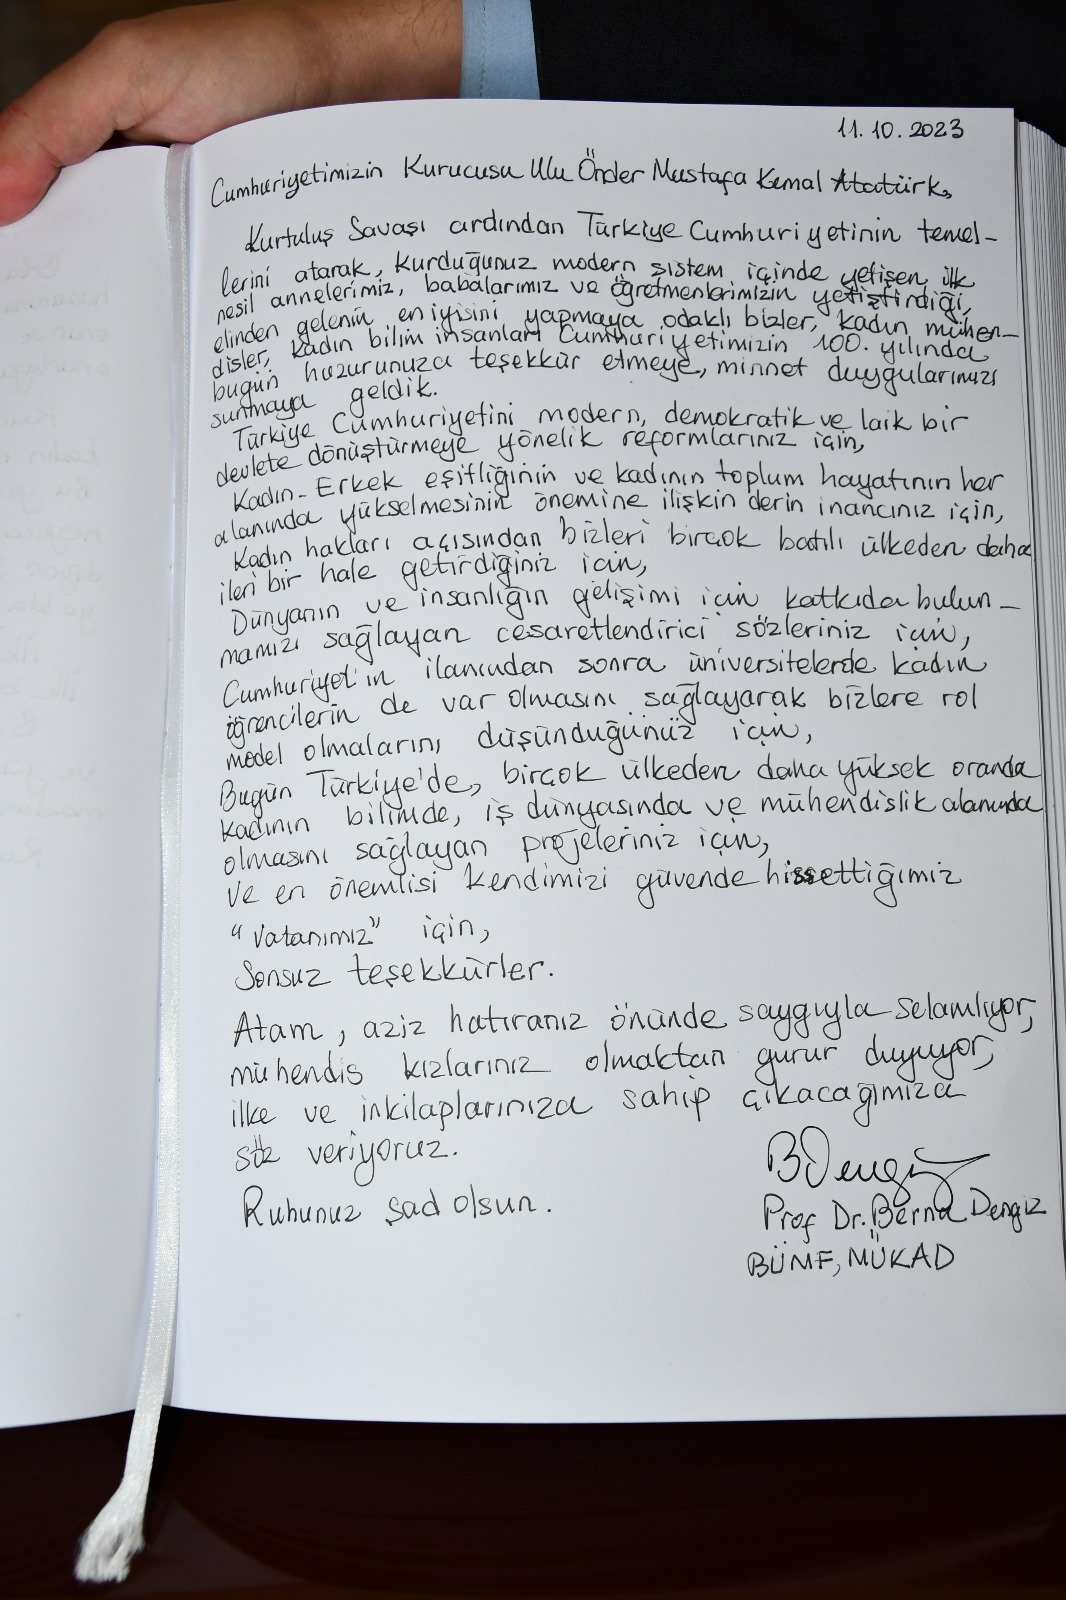 11.10.2023
Cumhuriyetimizin Kurucusu Ulu Önder Mustafa Kemal Atatürk,
Kurtuluş Savaşı ardından Türkiye Cumhuriyetinin temel-
lerini atarak, kurduğunuz modern sistem içinde yetişen ilk
nesil annelerimiz, babalarımız ve öğretmenlerimizin yetiştirdiği,
elinden gelenin en iyisini yapmaya odaklı bizler, kadın mühen-
disler, kadın bilim insanları Cumhuriyetimizin 100. yılında
bugün huzurunuza teşekkür etmeye, minnet duygularımızı
sunmaya geldik.
Türkiye Cumhuriyetini modern, demokratik ve laik bir
devlete dönüştürmeye yönelik reformlarınız için,
Kadın-Erkek eşitliğinin ve kadının toplum hayatının her
alanında yükselmesinin önemine ilişkin derin inancınız için,
Kadın hakları açısından bizleri birçok batılı ülkeden daha
ileri bir hale getirdiğiniz için,
Dünyanın ve insanlığın gelişimi için katkıda bulun-
mamızı sağlayan cesaretlendirici sözleriniz için,
Cumhuriyet'in ilanından sonra üniversitelerde kadın
öğrencilerin de var olmasını sağlayarak bizlere rol
model olmalarını düşündüğünüz için,
Bugün Türkiye'de, birçok ülkeden daha yüksek oranda
kadının bilimde, iş dünyasında ve mühendislik alanında
olmasını sağlayan projeleriniz için,
ve en önemlisi kendimizi güvende hissettiğimiz
"Vatanımız" için,
Sonsuz teşekkürler.
Atam, aziz hatıranız önünde saygıyla selamlıyor,
mühendis kızlarınız olmaktan gurur duyuyor,
ilke ve inkilaplarınıza sahip çıkacağımıza
söz veriyoruz.
Ruhunuz şad olsun.
BDengiz
Prof Dr. Berna Dengiz
BÜMF, MÜKAD